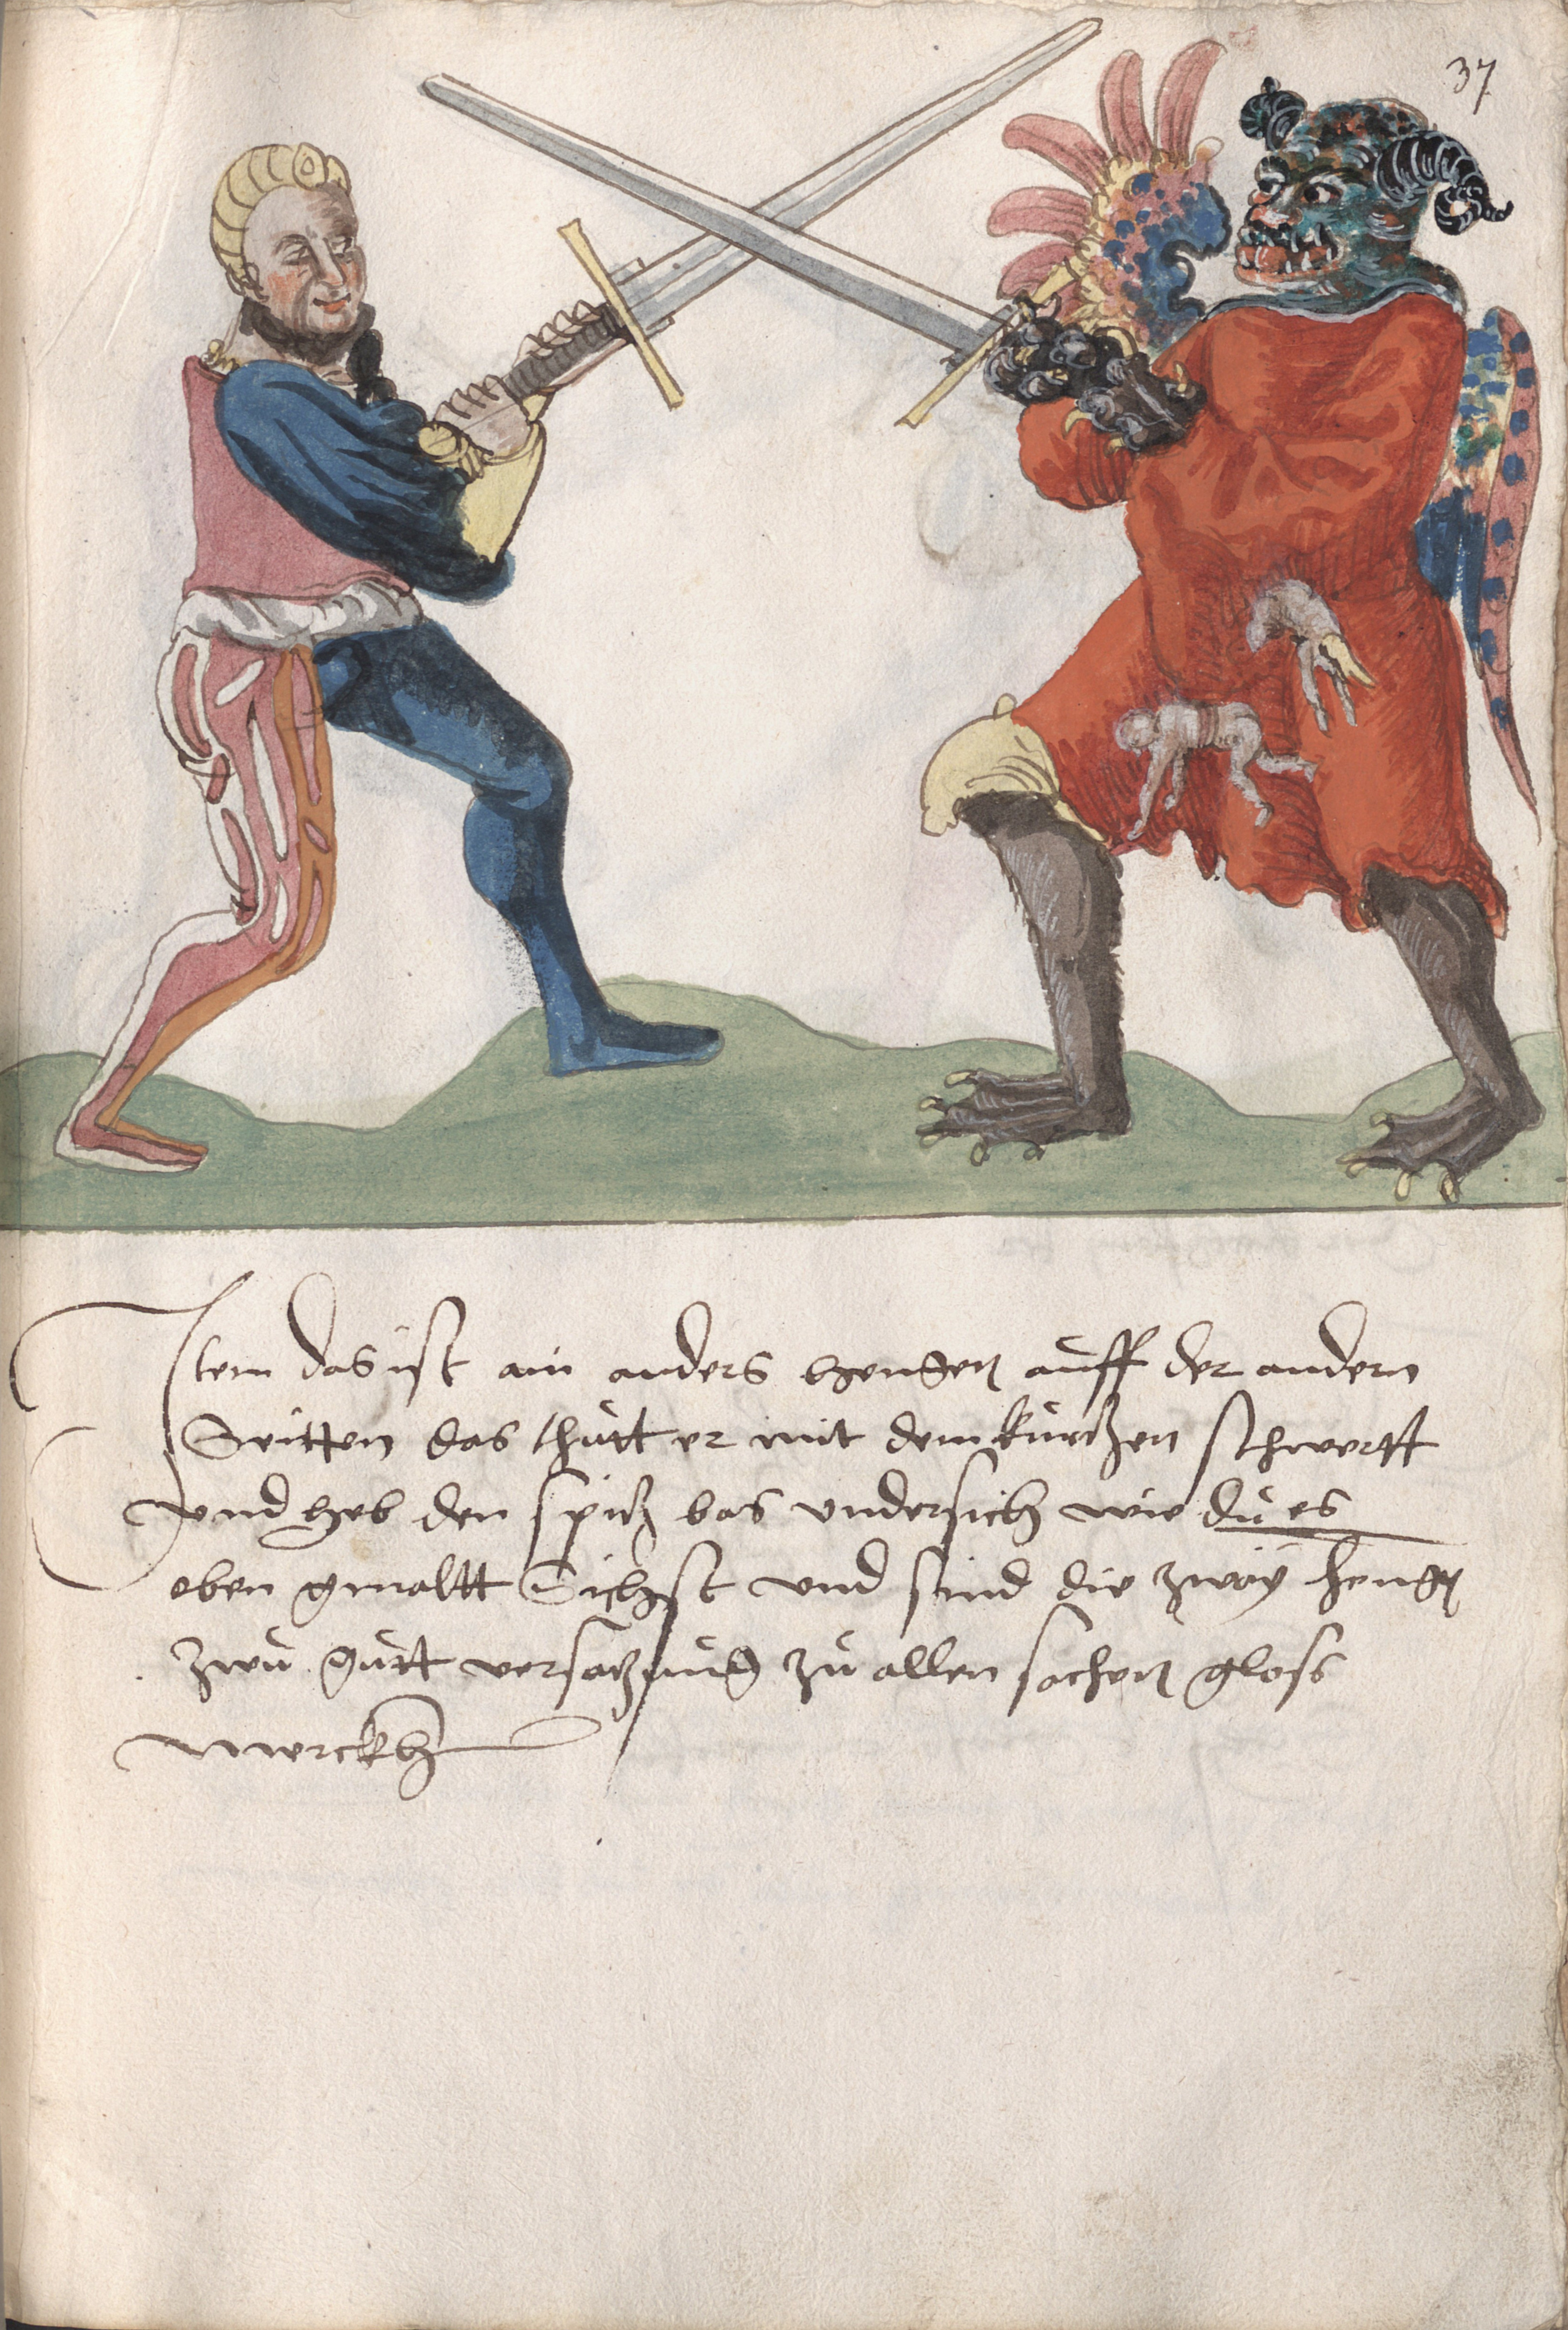 37
Item das ist ain anders hengen auff der andern
Seitten das thůtt er mit dem kůrtzen schwertt
vnd heb den spitz bas vndersich wie dů es
eben gmaltt Sichst vnd sind die zway heng
zwů gůtt versatzůng zů allen sachen gloss
merckh